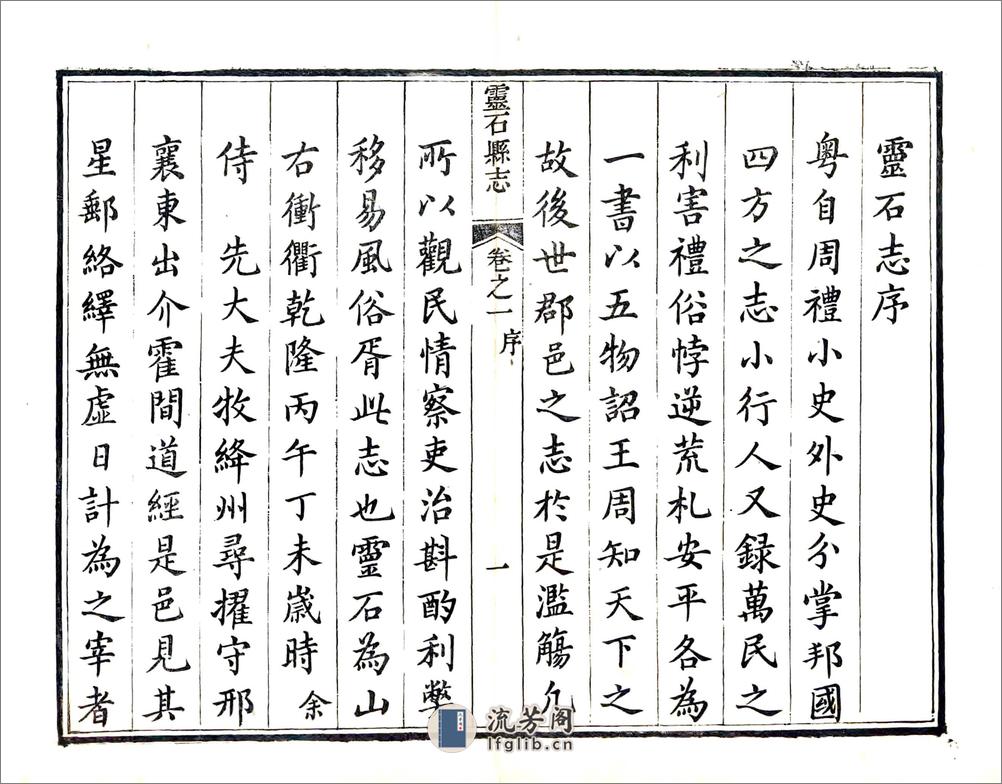 靈石志序
粤自周禮小史外史分掌邦國
四方之志小行人又録萬民之
利害禮俗悖逆荒札安平各為
一書以五物詔王周知天下之
故後世郡邑之志於是濫觴凡
靈石縣志 卷之一 序 一
所以觀民情察吏治斟酌利弊
移易風俗胥此志也靈石為山
右衝衢乾隆丙午丁未嵗時余
侍 先大夫牧絳州尋擢守邢
襄東出介霍間道經是邑見其
星郵絡繹無虚日計為之宰者
流芳阁
lfglib.cn